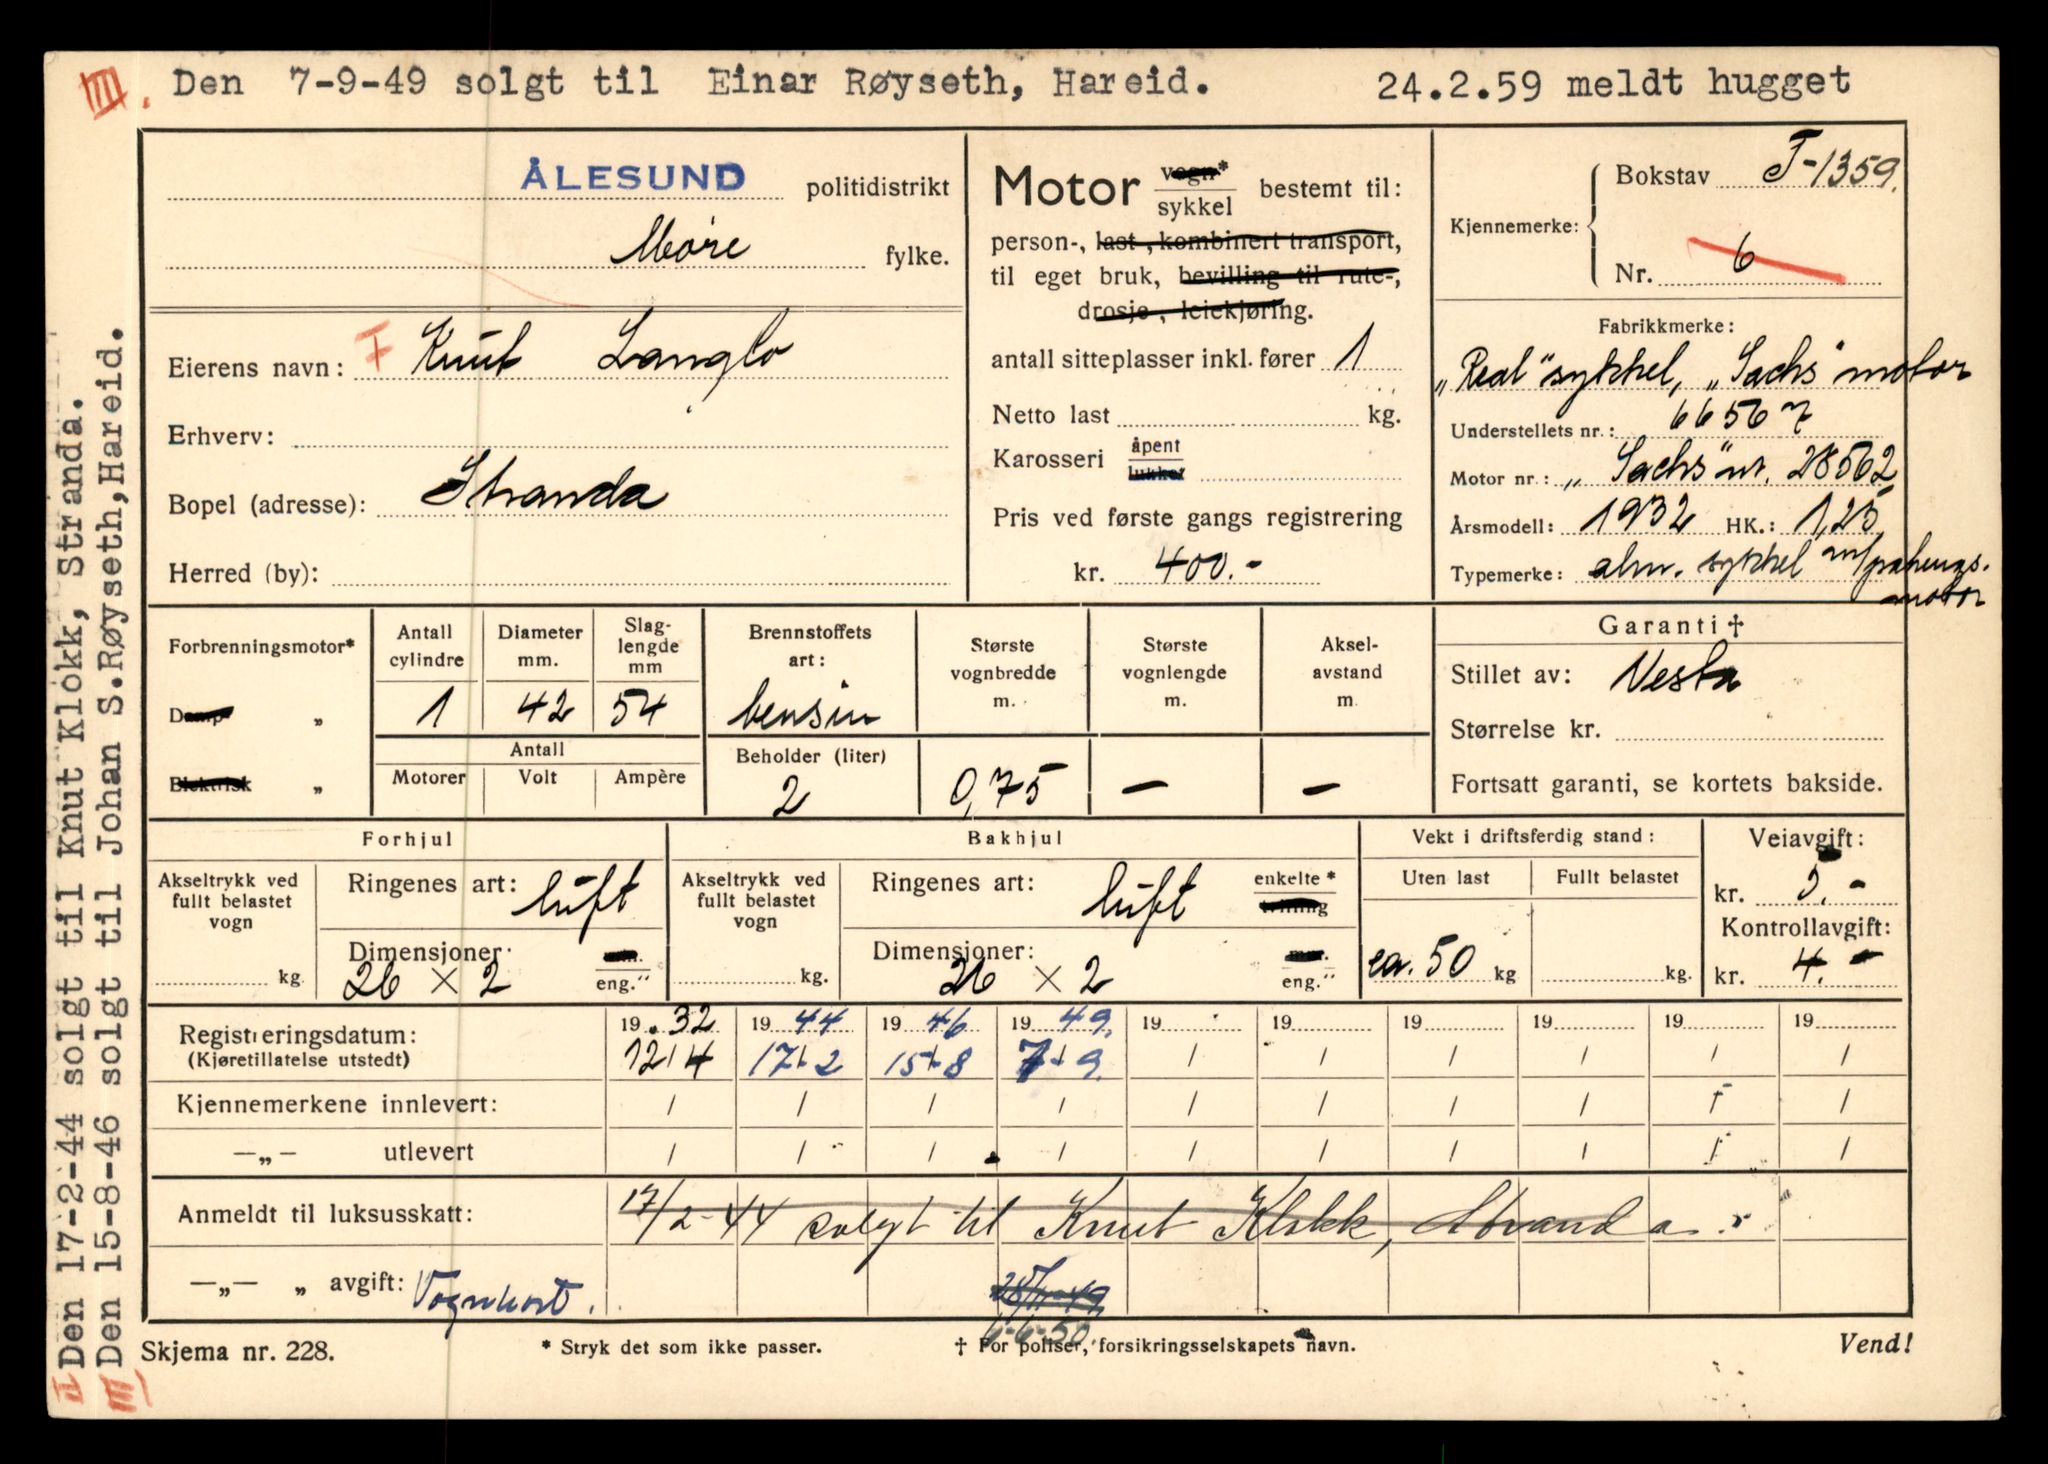 IIII. Den 7-9-49 solgt til Einar Røyseth, Hareid. 24.2.59 meldt hugget
II Den 17-2-44 solgt til Knut Klokk, Stranda.
III Den 15-8-46 solgt til Johan S.Røyseth,Hareid.
ÅLESUND politidistrikt
Møre fylke.
Eierens navn: I Knut Langlo
Erhverv:
Bopel (adresse): Stranda
Herred (by):
Motor vogn* sykkel bestemt til:
person-, last-, kombinert transport,
til eget bruk, bevilling til rute-,
drosje-, leiekjøring.
antall sitteplasser inkl. fører 1
Netto last kg.
Karosseri åpent lukket
Pris ved første gangs registrering
kr. 400.-
Kjennemerke: Bokstav T-1359.
Nr. 6
Fabrikkmerke:
„Real" sykkel, „Sachs" motor
Understellets nr.: 66567
Motor nr.: „Sachs" nr. 28562
Årsmodell: 1932 HK.: 1,25
Typemerke: alm. sykkel m/pahengs-
motor
Forbrenningsmotor*
Damp „
Elektrisk „
Antall cylindre
1
Diameter mm.
42
Slag-
lengde
mm
54
Antall
Motorer Volt Ampère
Brennstoffets
art:
bensin
Beholder (liter)
2
Største
vognbredde
m.
0,75
Største
vognlengde
m.
—
Aksel-
avstand
m
—
Garanti †
Stillet av: Vesta
Størrelse kr.
Fortsatt garanti, se kortets bakside.
Forhjul
Akseltrykk ved
fullt belastet
vogn
kg.
Ringenes art: luft
Dimensjoner: mm.
26 × 2 eng."
Bakhjul
Akseltrykk ved
fullt belastet
vogn
kg.
Ringenes art: luft enkelte * tvilling
Dimensjoner: mm.
26 × 2 eng."
Vekt i driftsferdig stand:
Uten last Fullt belastet
ca. 50 kg kg.
Veiavgift:
kr. 5.-
Kontrollavgift:
kr. 4.-
Registreringsdatum: 19 32 19 44 19 46 19 49. 19 19 19 19 19 19
(Kjøretillatelse utstedt) 12/4 17/2 15/8 7/9. / / / / / /
Kjennemerkene innlevert: / / / / / / / / / /
—„— utlevert / / / / / / / / / /
Anmeldt til luksusskatt: 17/2-44 solgt til Knut Klokk, Stranda.
—„— „ avgift: Vognkort. 28/11-49
6-6-50.
Skjema nr. 228. * Stryk det som ikke passer. † For poliser, forsikringsselskapets navn. Vend!